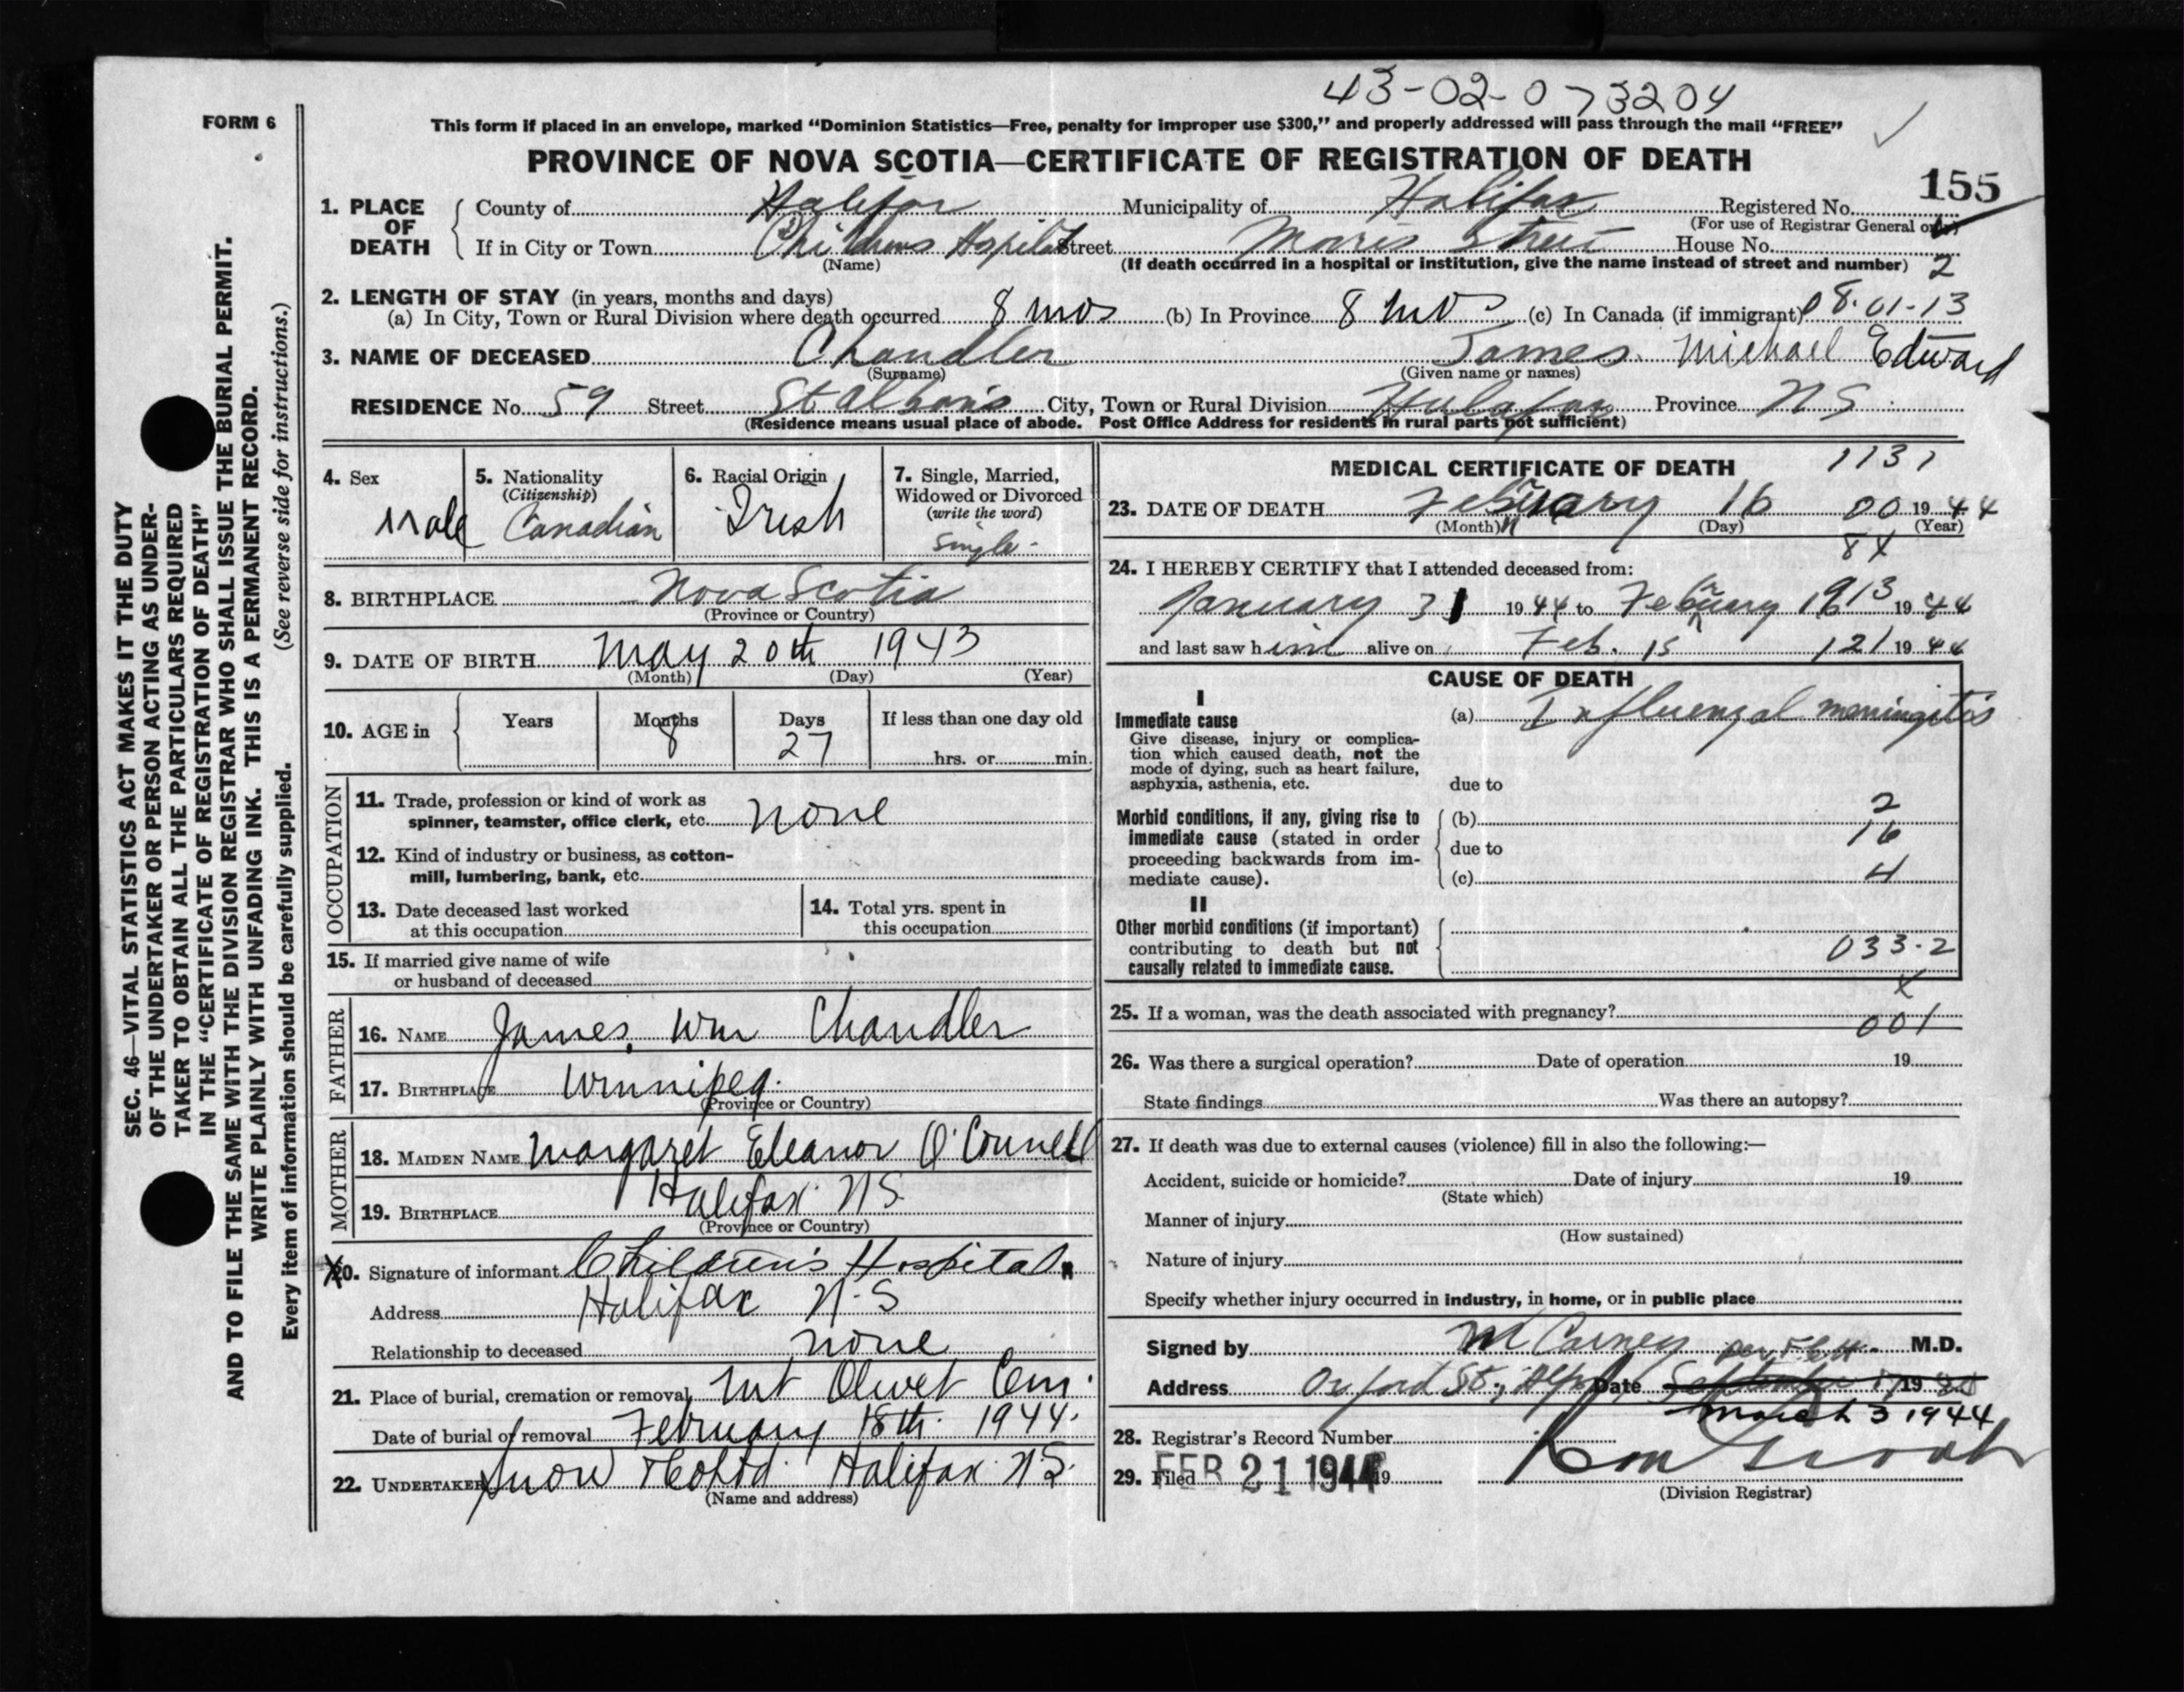 43-02-073204
FORM 6
This form if placed in an envelope, marked “Dominion Statistics—Free, penalty for improper use $300,” and properly addressed will pass through the mail “FREE”
PROVINCE OF NOVA SCOTIA—CERTIFICATE OF REGISTRATION OF DEATH
155
1. PLACE OF DEATH
County of Halifax Municipality of Halifax Registered No.
(For use of Registrar General only)
If in City or Town Childrens Hospital Street Morris Street House No.
(Name) (If death occurred in a hospital or institution, give the name instead of street and number) 2
2. LENGTH OF STAY (in years, months and days)
(a) In City, Town or Rural Division where death occurred 8 mos (b) In Province 8 mos (c) In Canada (if immigrant) 08-01-13
3. NAME OF DECEASED Chandler James Michael Edward
(Surname) (Given name or names)
RESIDENCE No. 59 Street St Alban's City, Town or Rural Division Halifax Province NS
(Residence means usual place of abode. Post Office Address for residents in rural parts not sufficient)
SEC. 46—VITAL STATISTICS ACT MAKES IT THE DUTY
OF THE UNDERTAKER OR PERSON ACTING AS UNDER-
TAKER TO OBTAIN ALL THE PARTICULARS REQUIRED
IN THE “CERTIFICATE OF REGISTRATION OF DEATH”
AND TO FILE THE SAME WITH THE DIVISION REGISTRAR WHO SHALL ISSUE THE BURIAL PERMIT.
WRITE PLAINLY WITH UNFADING INK. THIS IS A PERMANENT RECORD.
Every item of information should be carefully supplied. (See reverse side for instructions.)
4. Sex
Male
5. Nationality
(Citizenship)
Canadian
6. Racial Origin
Irish
7. Single, Married,
Widowed or Divorced
(write the word)
Single
8. BIRTHPLACE Nova Scotia
(Province or Country)
9. DATE OF BIRTH May 20th 1943
(Month) (Day) (Year)
10. AGE in
Years Months Days If less than one day old
8 27
hrs. or min.
OCCUPATION
11. Trade, profession or kind of work as
spinner, teamster, office clerk, etc. None
12. Kind of industry or business, as cotton-
mill, lumbering, bank, etc.
13. Date deceased last worked
at this occupation
14. Total yrs. spent in
this occupation
15. If married give name of wife
or husband of deceased
FATHER
16. NAME James Wm Chandler
17. BIRTHPLACE Winnipeg.
(Province or Country)
MOTHER
18. MAIDEN NAME Margaret Eleanor O'Connell
19. BIRTHPLACE Halifax NS
(Province or Country)
X20. Signature of informant Children's Hospital.
Address Halifax N.S
Relationship to deceased none
21. Place of burial, cremation or removal Mt Olivet Cem.
Date of burial or removal February 18th. 1944.
22. UNDERTAKER Snow & Co Ltd. Halifax N.S.
(Name and address)
MEDICAL CERTIFICATE OF DEATH 1131
23. DATE OF DEATH February 16 00 19 44
(Month) (Day) (Year)
84
24. I HEREBY CERTIFY that I attended deceased from:
January 31 19 44 to February 16 13 19 44
and last saw him alive on Feb. 15 121 19 44
CAUSE OF DEATH
I
Immediate cause
Give disease, injury or complica-
tion which caused death, not the
mode of dying, such as heart failure,
asphyxia, asthenia, etc.
(a) Influenzal meningitis
due to
Morbid conditions, if any, giving rise to
immediate cause (stated in order
proceeding backwards from im-
mediate cause).
2
(b)
16
due to
4
(c)
II
Other morbid conditions (if important)
contributing to death but not
causally related to immediate cause.
033-2
X
25. If a woman, was the death associated with pregnancy?
001
26. Was there a surgical operation? Date of operation 19
State findings Was there an autopsy?
27. If death was due to external causes (violence) fill in also the following:—
Accident, suicide or homicide? Date of injury 19
(State which)
Manner of injury
(How sustained)
Nature of injury
Specify whether injury occurred in industry, in home, or in public place
Signed by M Carney M.D.
Address Oxford St., Date September 19
March 3 1944
28. Registrar's Record Number
29. Filed FEB 21 1944 19
(Division Registrar)